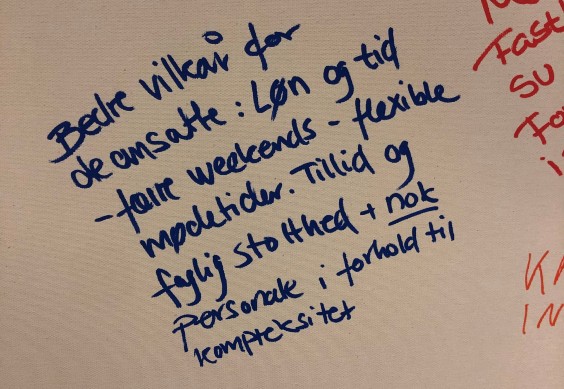 Bedre vilkår for
de ansatte : Løn og tid
- færre weekends - flexible
mødetider. Tillid og
faglig stolthed + nok
personale i forhold til
kompleksitet
Fast
SU